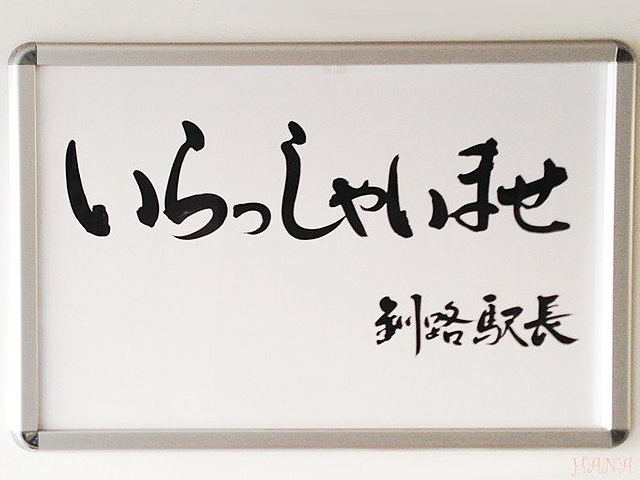 いらっしゃいませ
釧路駅長
HANA